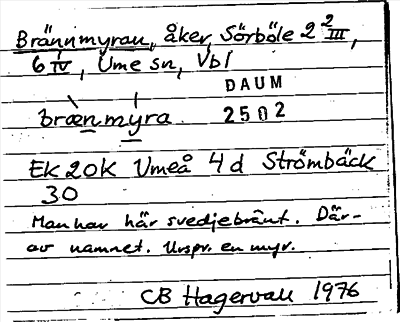 Brännmyran, åker, Sörböle 2 2/III,
6 1/IV, Ume sn, Vbl
DAUM
2502
brænmyra
EK 20K Umeå 4d Strömbäck
30
Man har här svedjebränt. Där-
av namnet. Urspr. en myr.
CB Hagervall 1976